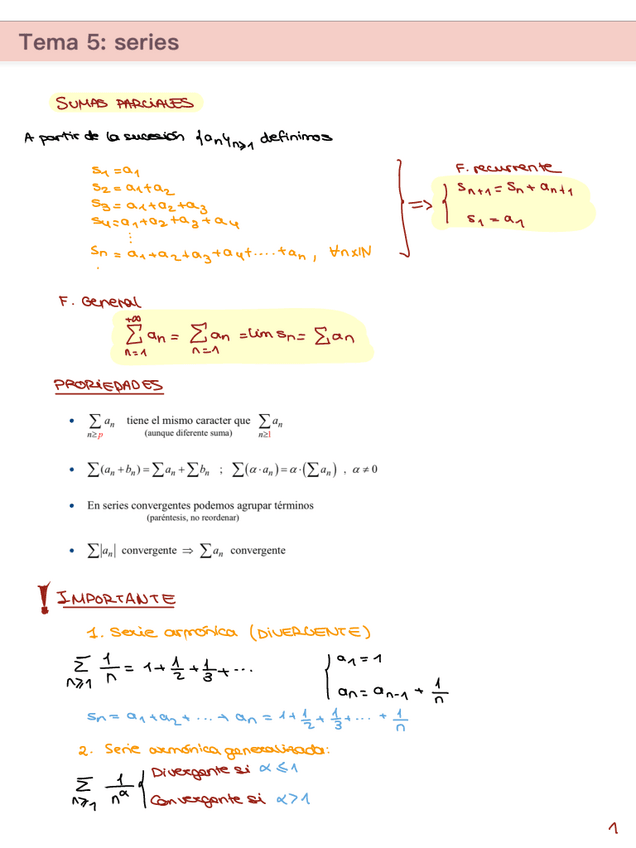 Tema 5: series
SUMAS PARCIALES
A partir de la sucesión {an}n≥1 definimos
S1 = a1
S2 = a1+a2
S3 = a1+a2+a3
S4 = a1+a2+a3+a4
⋮
Sn = a1+a2+a3+a4+....+an, ∀nxIN
F. recurrente
=> { Sn+1 = Sn + an+1
S1 = a1
F. General
∑_{n=1}^{+∞} an = ∑_{n=1} an = lim Sn = ∑an
PROPIEDADES
• ∑_{n≥p} an tiene el mismo caracter que ∑_{n≥1} an
(aunque diferente suma)
• ∑(an + bn) = ∑an + ∑bn ; ∑(α·an) = α·(∑an) , α ≠ 0
• En series convergentes podemos agrupar términos
(paréntesis, no reordenar)
• ∑|an| convergente ⇒ ∑an convergente
! IMPORTANTE
1. Serie armónica (DIVERGENTE)
∑_{n≥1} 1/n = 1 + 1/2 + 1/3 + ...
{ a1 = 1
an = an-1 + 1/n
Sn = a1 + a2 + ... + an = 1 + 1/2 + 1/3 + ... + 1/n
2. Serie armónica generalizada:
∑_{n≥1} 1/n^α { Divergente si α ≤ 1
Convergente si α > 1
1